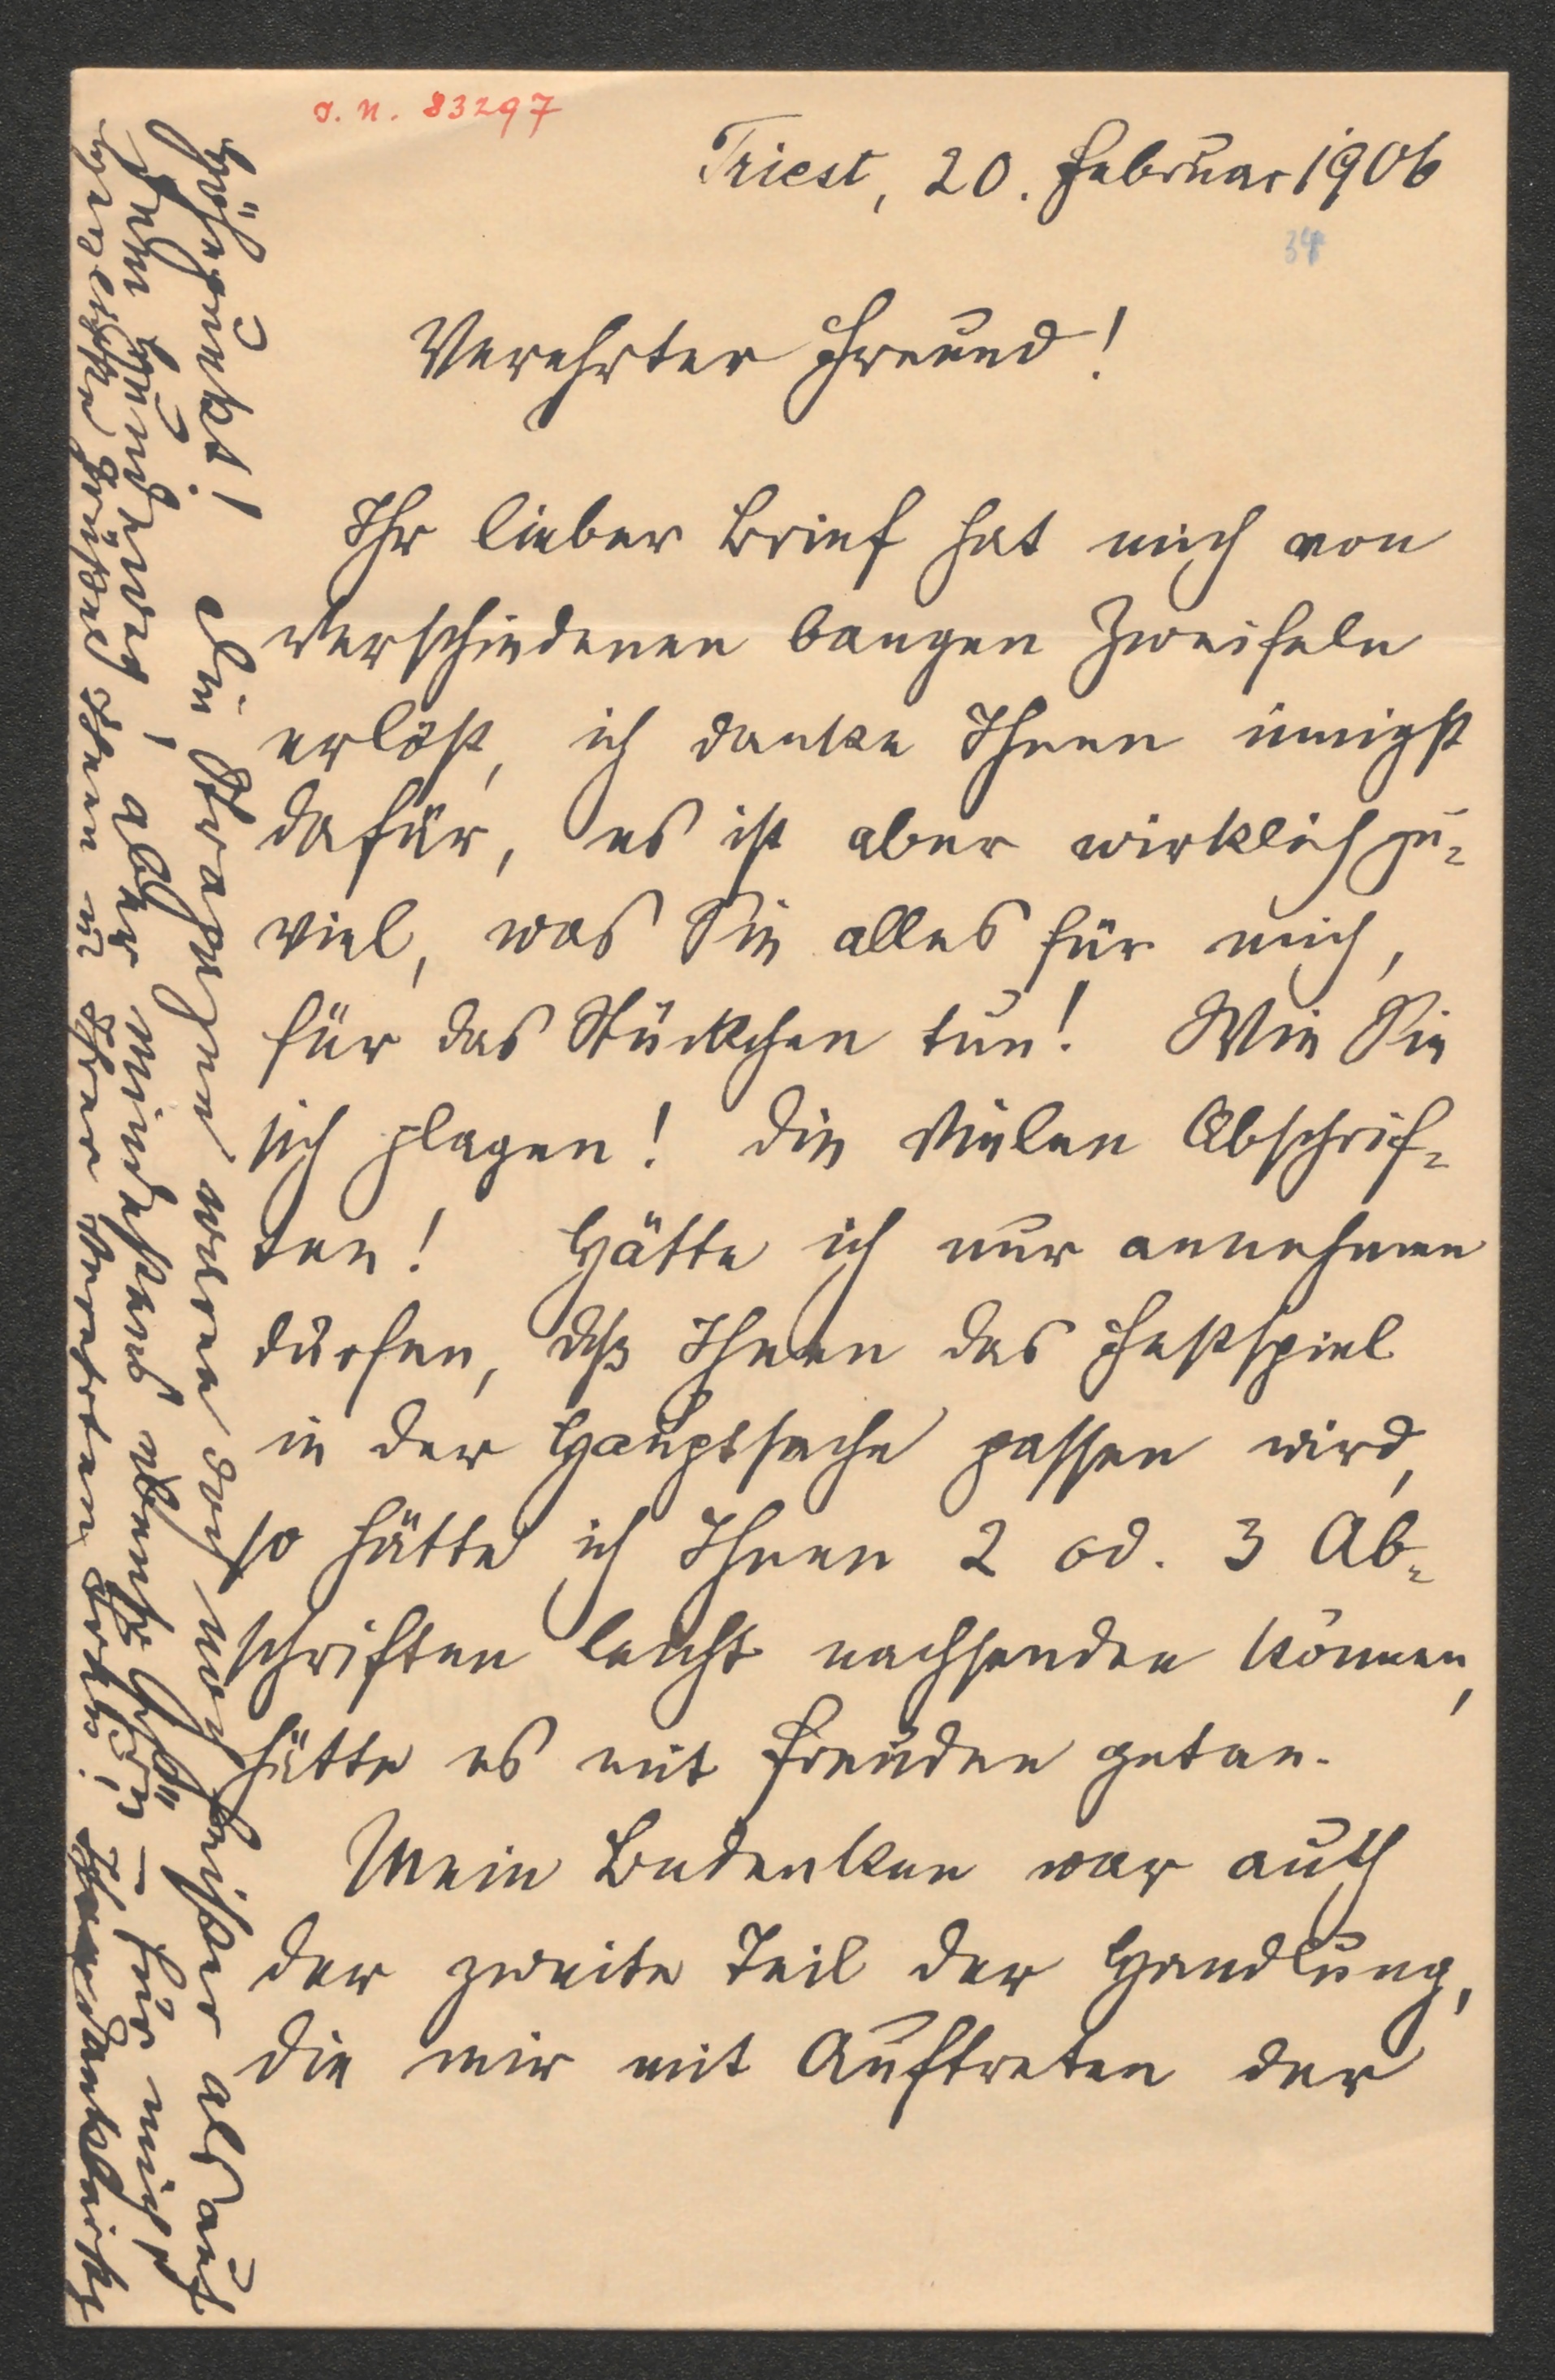 J. N. 83297
Triest, 20. Februar 1906
34
Verehrter Freund!
Ihr lieber Brief hat mich von
verschiedenen bangen Zweifeln
erlöst, ich danke Ihnen innigst
dafür, es ist aber wirklich zu-
viel, was Sie alles für mich,
für das Stückchen tun! Wie Sie
sich plagen! Die vielen Abschrif-
ten! Hätte ich nur annehmen
dürfen, dß Ihnen das Festspiel
in der Hauptsache passen wird,
so hätte ich Ihnen 2 od. 3 Ab-
schriften leicht nachsenden können,
hätte es mit Freuden getan.
Mein Bedenken war auch
der zweite Teil der Handlung,
die mir mit Auftreten der
Die Strapazen waren doch noch als auf
dem, aber mindestens für mich!
herzlichste Grüße Ihnen u Ihrer verehrten